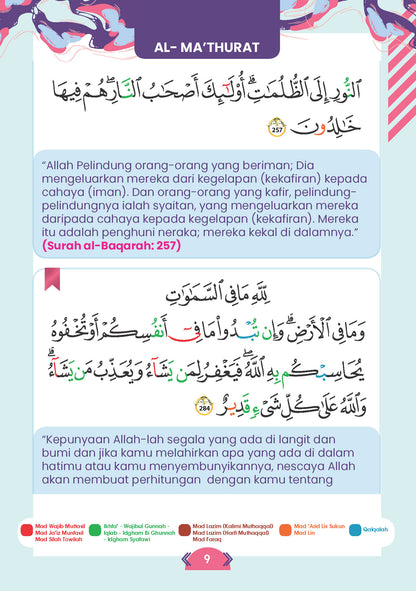 AL- MA’THURAT
ٱلنُّورِ إِلَى ٱلظُّلُمَٰتِۗ أُو۟لَٰٓئِكَ أَصْحَٰبُ ٱلنَّارِۖ هُمْ فِيهَا
خَٰلِدُونَ 257
“Allah Pelindung orang-orang yang beriman; Dia
mengeluarkan mereka dari kegelapan (kekafiran) kepada
cahaya (iman). Dan orang-orang yang kafir, pelindung-
pelindungnya ialah syaitan, yang mengeluarkan mereka
daripada cahaya kepada kegelapan (kekafiran). Mereka
itu adalah penghuni neraka; mereka kekal di dalamnya.”
(Surah al-Baqarah: 257)
لِلَّهِ مَا فِى ٱلسَّمَٰوَٰتِ
وَمَا فِى ٱلْأَرْضِۗ وَإِن تُبْدُوا۟ مَا فِىٓ أَنفُسِكُمْ أَوْ تُخْفُوهُ
يُحَاسِبْكُم بِهِ ٱللَّهُۖ فَيَغْفِرُ لِمَن يَشَآءُ وَيُعَذِّبُ مَن يَشَآءُۗ
وَٱللَّهُ عَلَىٰ كُلِّ شَىْءٍ قَدِيرٌ 284
“Kepunyaan Allah-lah segala yang ada di langit dan
bumi dan jika kamu melahirkan apa yang ada di dalam
hatimu atau kamu menyembunyikannya, nescaya Allah
akan membuat perhitungan dengan kamu tentang
Mad Wajib Muttasil
Mad Ja'iz Munfasil
Mad Silah Towilah
Ikhfa' - Wajibul Gunnah -
Iqlab - Idgham Bi Ghunnah
- Idgham Syafawi
Mad Lazim (Kalimi Muthaqqal)
Mad Lazim (Harfi Muthaqqal)
Mad Faraq
Mad 'Arid Lis Sukun
Mad Lin
Qalqalah
9